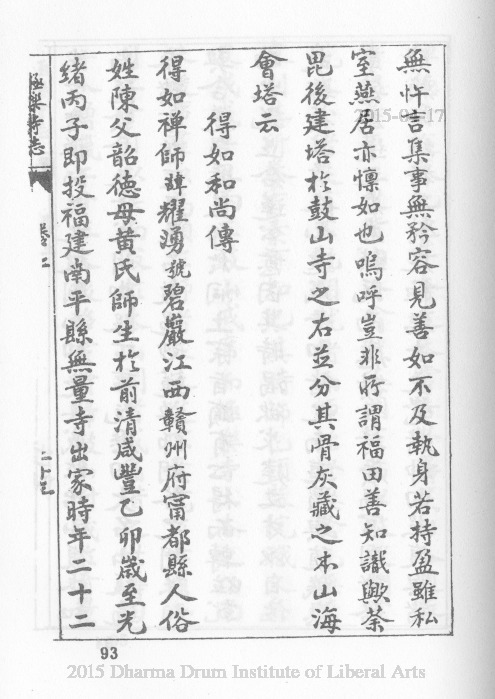 無忤言集事無矜容見善如不及執身若持盈雖私
室燕居亦懍如也嗚呼豈非所謂福田善知識歟荼
毘後建塔於鼓山寺之右並分其骨灰藏之本山海
會塔云
得如和尚傳
得如禪師諱耀湧號碧巖江西贛州府甯都縣人俗
姓陳父韶德母黃氏師生於前清咸豐乙卯歲至光
緒丙子即投福建南平縣無量寺出家時年二十二
極樂寺志
卷二
二十七
93
2015 Dharma Drum Institute of Liberal Arts